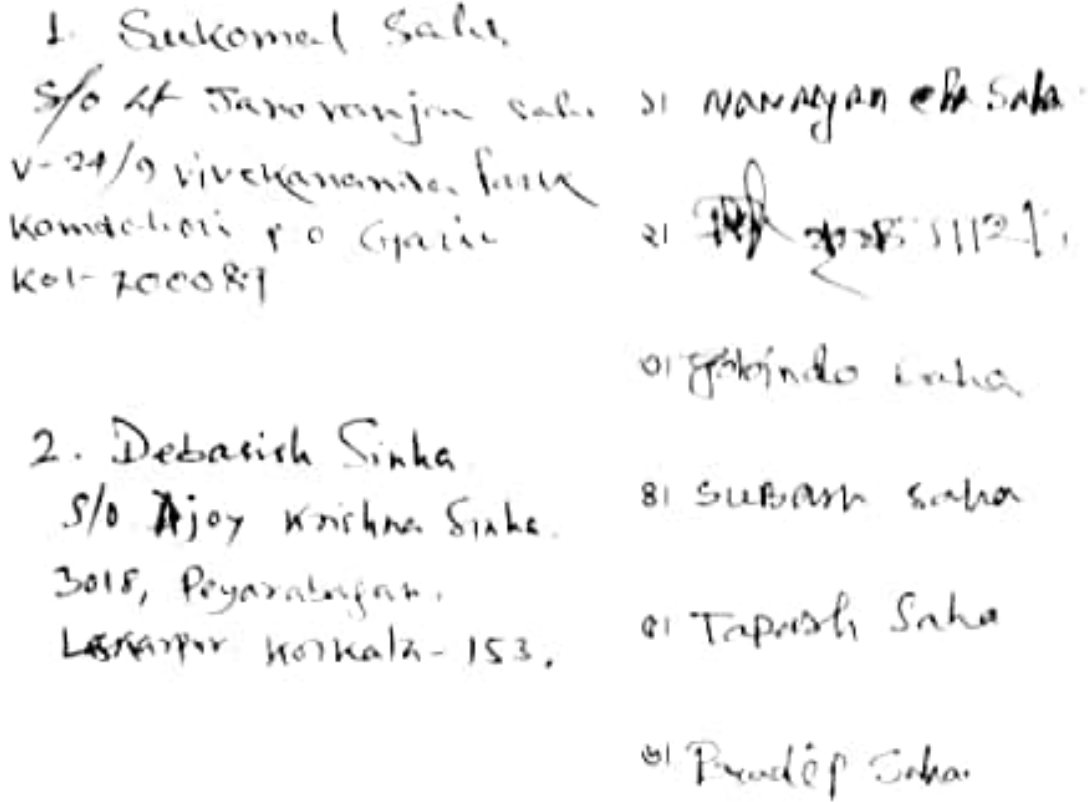 1. Sukomal Saha
S/o Lt Tanoranjan Saha
V-24/9 Vivekananda Park
P.O Garia
Kol-700084
2. Debasish Sinha
S/o Ajoy Krishna Sinha.
3018, Peyarabagan.
Laskarpur Kolkata-153.
১। Narayan ch Saha
২।
৩। Gobindo Saha
৪। SUBASH Saha
৫। Tapash Saha
৬। Pradip Saha